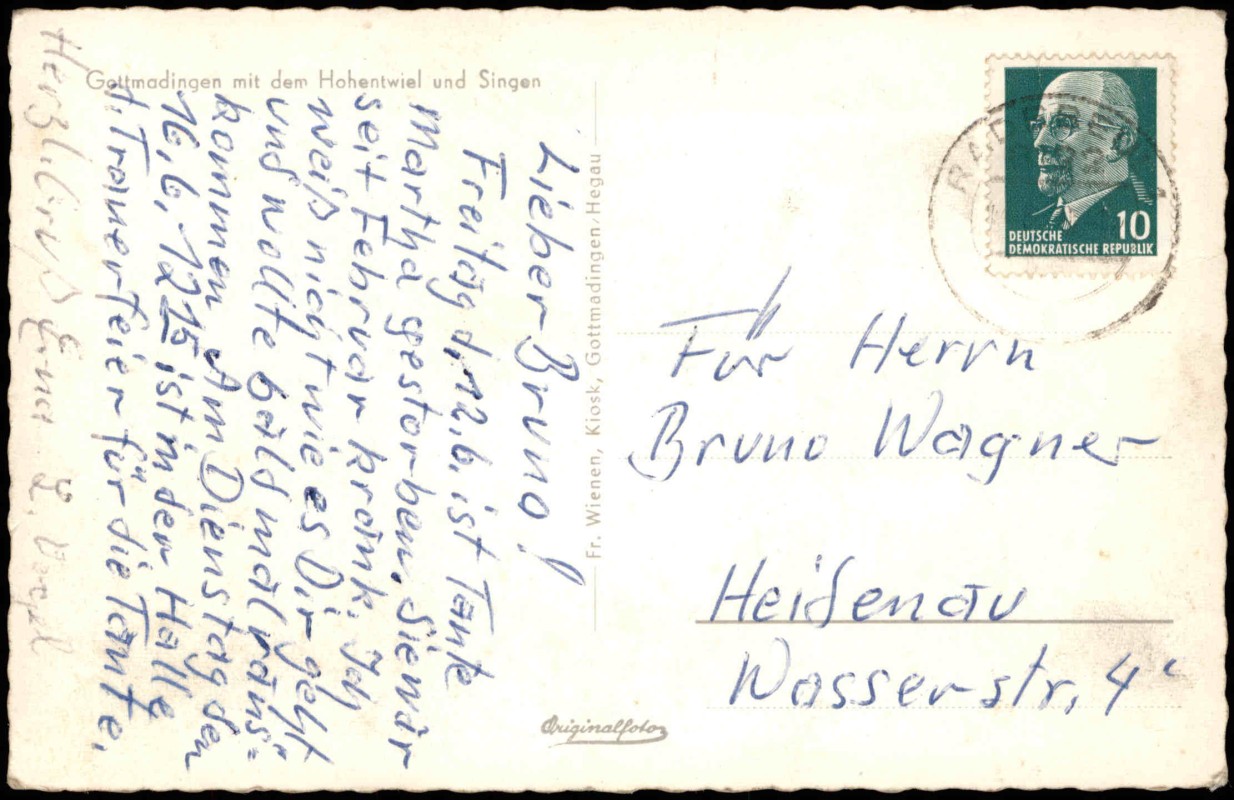 Gottmadingen mit dem Hohentwiel und Singen
Lieber Bruno!
Freitag d. 12.6. ist Tante
Martha gestorben. Sie war
seit Februar krank. Ich
weiß nicht wie es Dir geht
und wollte bald mal raus=
kommen. Am Dienstag den
16.6. 12 15 ist in der Halle
d. Trauerfeier für die Tante.
Herzl. Gruß Erna
Fr. Wienen, Kiosk, Gottmadingen/Hegau
Originalfoto
10
DEUTSCHE
DEMOKRATISCHE REPUBLIK
Für Herrn
Bruno Wagner
Heidenau
Wasserstr. 4